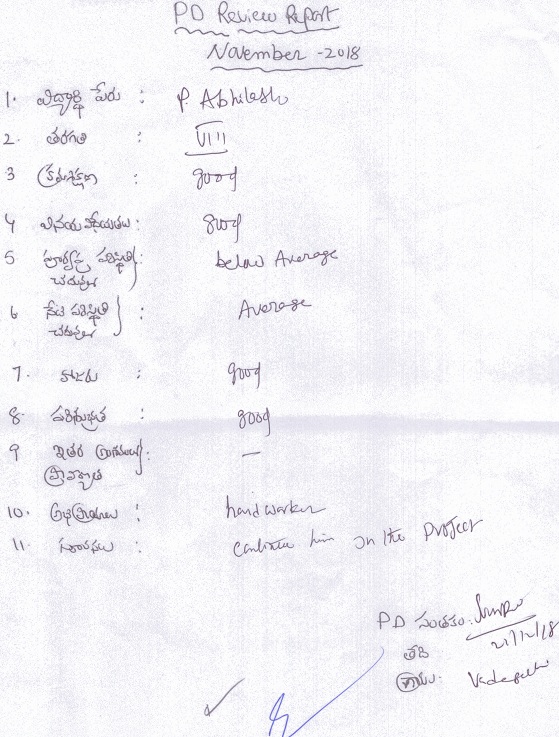 PD Review Report
November - 2018
1. విద్యార్థి పేరు : P. Abhilash
2. తరగతి : VIII
3 క్రమశిక్షణ : good
4 వినయ విధేయతలు : good
5 పూర్వపు పరిస్థితి చదువులు : below Average
6 నేటి పరిస్థితి చదువులు : Average
7. హాజరు : good
8. పరిశుభ్రత : good
9 ఇతర : —
10. అభిప్రాయాలు : hard worker
11. సూచనలు : continue him on the Project
PD సంతకం:
తేది 21/12/18
గ్రామం: